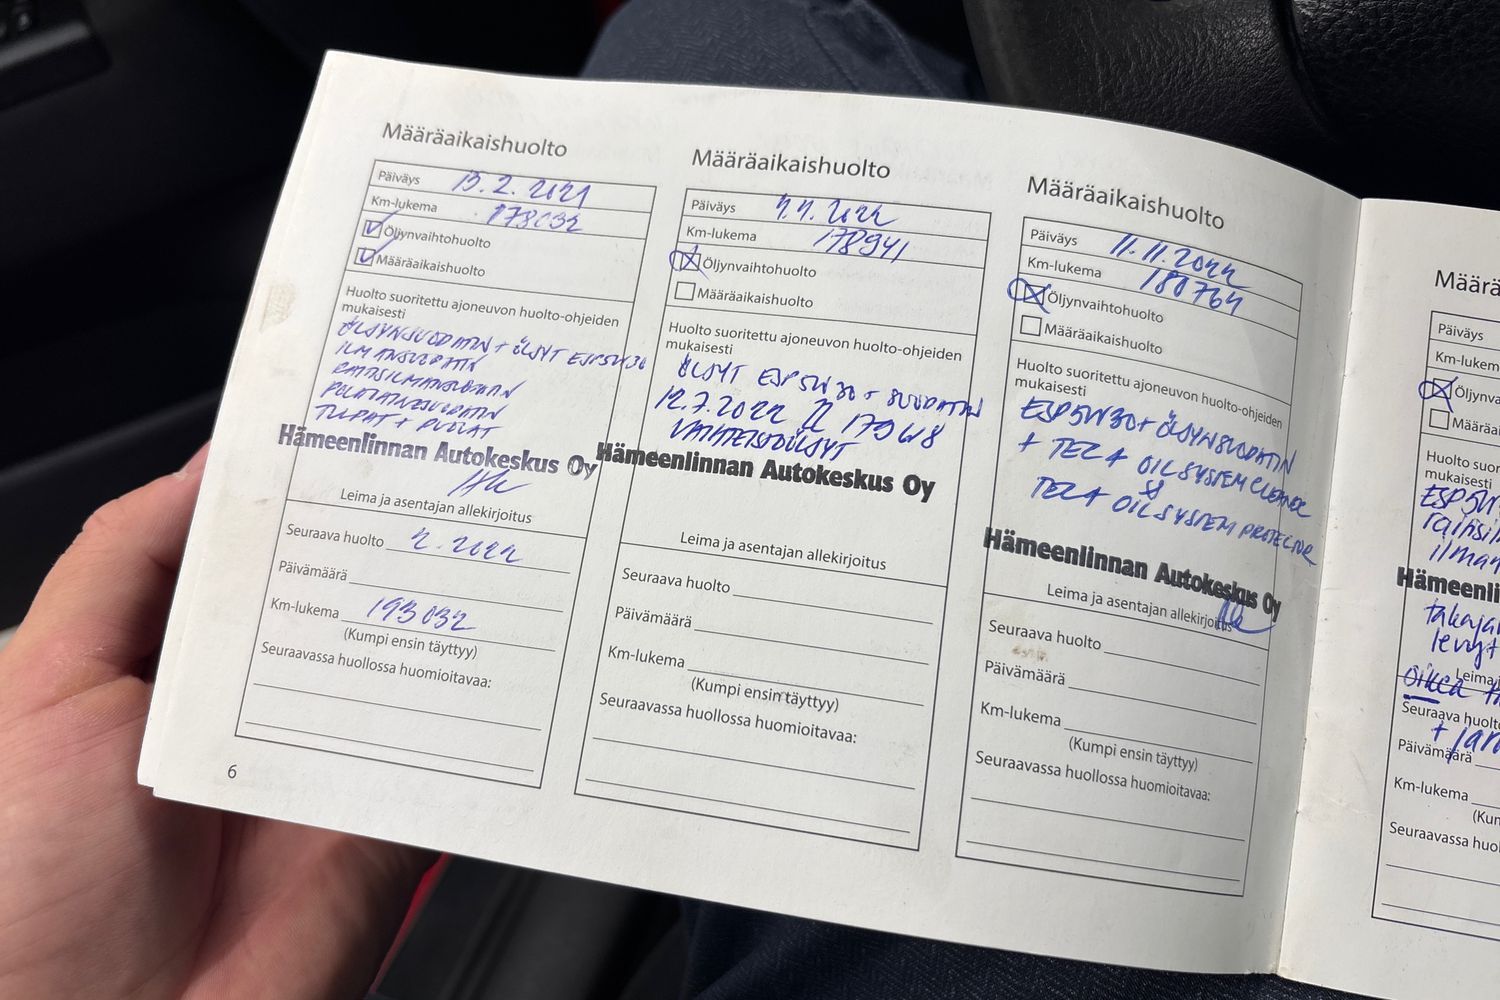 Määräaikaishuolto
Päiväys 15.2.2021
Km-lukema 178032
Öljynvaihtohuolto
Määräaikaishuolto
Huolto suoritettu ajoneuvon huolto-ohjeiden
mukaisesti
ÖLJYNSUODATIN + ÖLJYT ESP5W30
ILMANSUODATIN
RAITISILMASUODATIN
POLTTAINESUODATIN
TULPAT + PUOLAT
Hämeenlinnan Autokeskus Oy
Leima ja asentajan allekirjoitus
Seuraava huolto 2.2022
Päivämäärä
Km-lukema 193032
(Kumpi ensin täyttyy)
Seuraavassa huollossa huomioitavaa:
6
Määräaikaishuolto
Päiväys 4.4.2022
Km-lukema 178941
Öljynvaihtohuolto
Määräaikaishuolto
Huolto suoritettu ajoneuvon huolto-ohjeiden
mukaisesti
ÖLJYT ESP5W30 + SUODATIN
12.7.2022 179618
VAIHTEISTOÖLJYT
Hämeenlinnan Autokeskus Oy
Leima ja asentajan allekirjoitus
Seuraava huolto
Päivämäärä
Km-lukema
(Kumpi ensin täyttyy)
Seuraavassa huollossa huomioitavaa:
Määräaikaishuolto
Päiväys 11.11.2022
Km-lukema 180764
Öljynvaihtohuolto
Määräaikaishuolto
Huolto suoritettu ajoneuvon huolto-ohjeiden
mukaisesti
ESP5W30 + ÖLJYNSUODATIN
+ TEZA OILSYSTEM CLEANER
TEZA OILSYSTEM PROTECTOR
Hämeenlinnan Autokeskus Oy
Leima ja asentajan allekirjoitus
Seuraava huolto
Päivämäärä
Km-lukema
(Kumpi ensin täyttyy)
Seuraavassa huollossa huomioitavaa:
Määrä
Päiväys
Km-lukema
Öljynvaih
Määräai
Huolto suor
mukaisesti
ESP5W
raitisil
ilman
Hämeenli
takajar
levyt
Leima j
oikea
Seuraava huolto
+ jar
Päivämäärä
Km-lukema
(Kun
Seuraavassa huol